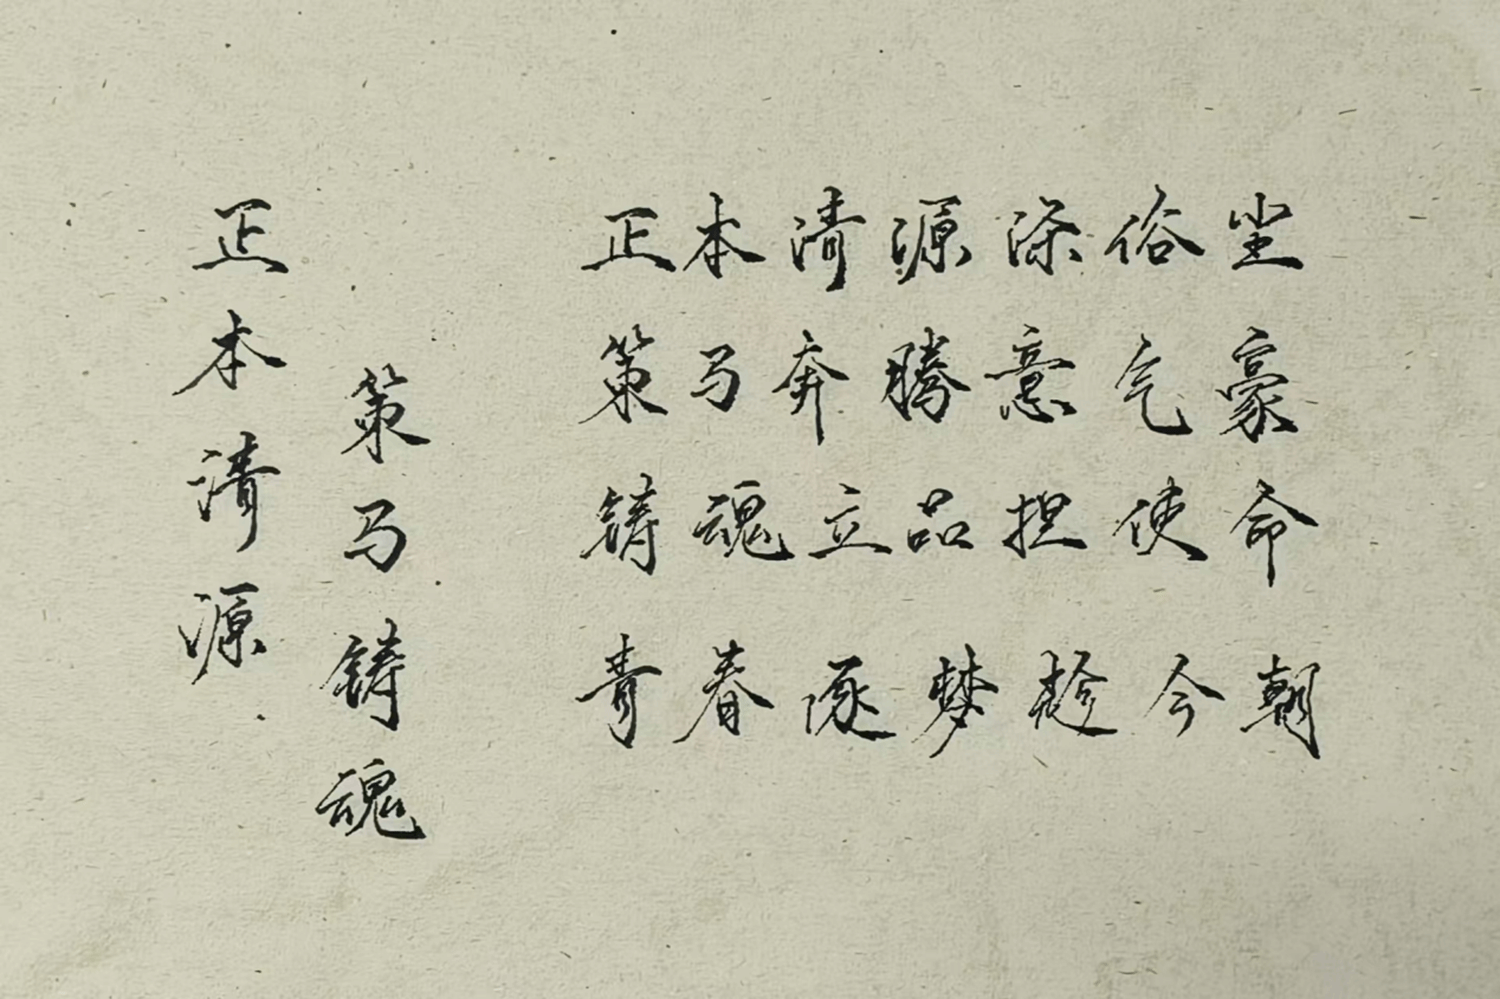 正本清源
策马铸魂
正本清源涤俗尘
策马奔腾意气豪
铸魂立品担使命
青春逐梦趁今朝